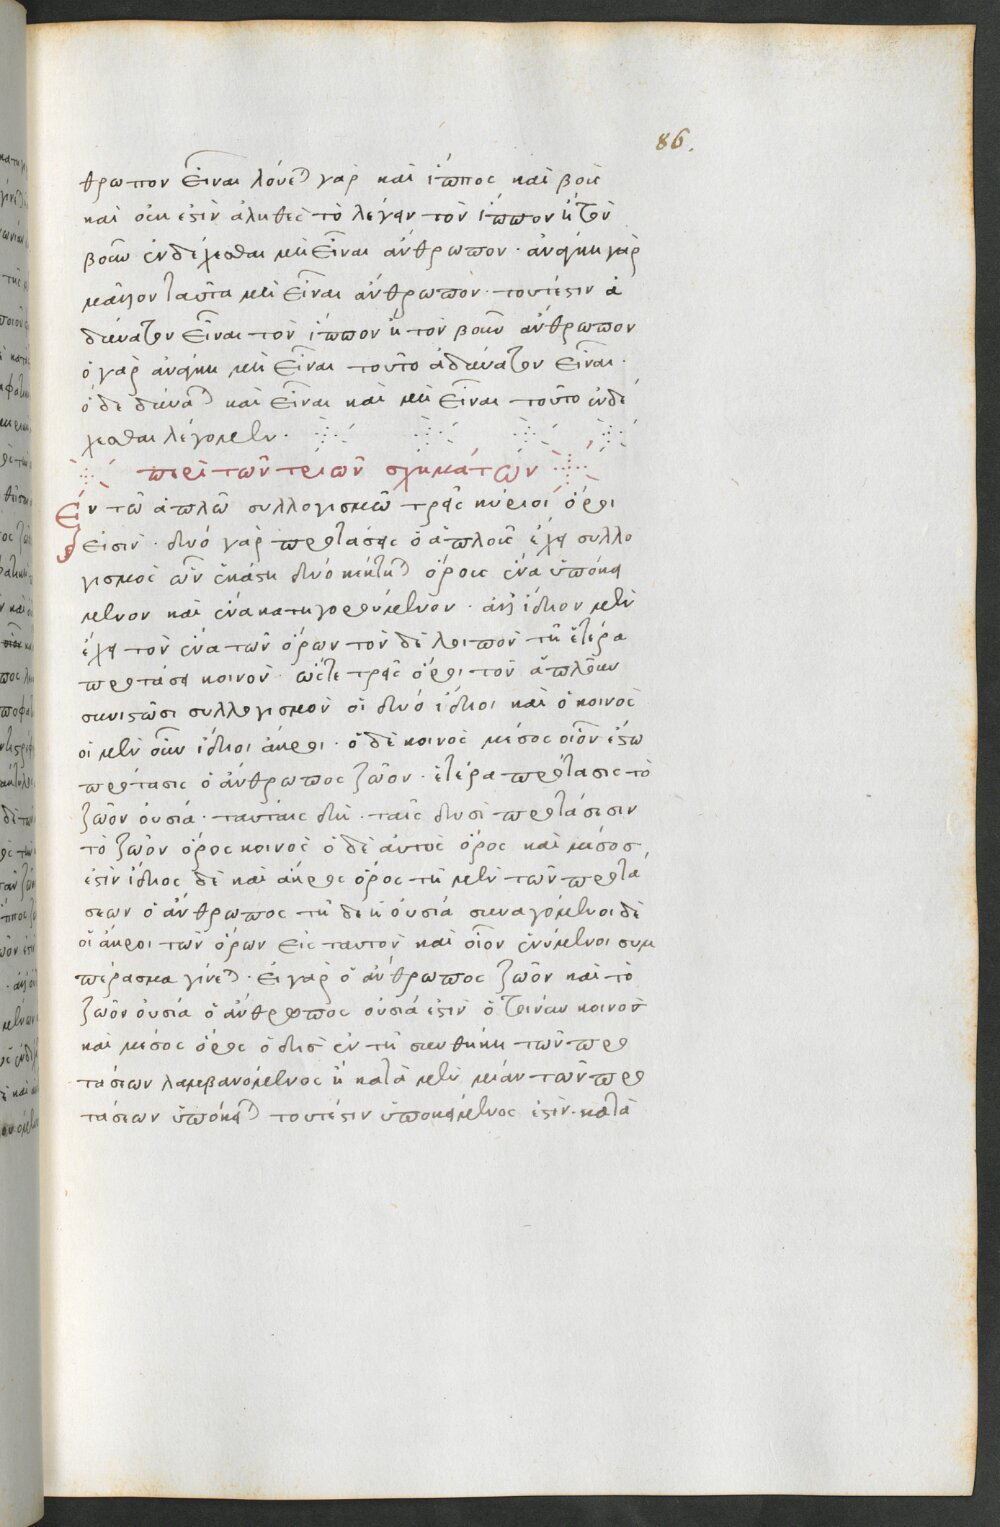 86.
θρωπον εἶναι λούεται γὰρ καὶ ἵππος καὶ βοῦς
καὶ οὐκ ἐστὶν ἀληθὲς τὸ λέγειν τὸν ἵππον ἢ τὸν
βοῦν ἐνδέχεσθαι μὴ εἶναι ἄνθρωπον · ἀνάγκη γὰρ
μᾶλλον ταῦτα μὴ εἶναι ἄνθρωπον · τουτέστιν ἀ
δύνατον εἶναι τὸν ἵππον ἢ τὸν βοῦν ἄνθρωπον
ὃ γὰρ ἀνάγκη μὴ εἶναι τοῦτο ἀδύνατον εἶναι ·
ὃ δὲ δύναται καὶ εἶναι καὶ μὴ εἶναι τοῦτο ἐνδέ
χεσθαι λέγομεν ·
περὶ τῶν τριῶν σχημάτων
Ἐν τῶ ἁπλῶ συλλογισμῶ τρεῖς κύριοι ὅροι
εἰσιν · δύο γὰρ προτάσεις ὁ ἁπλοῦς ἔχει συλλο
γισμὸς ὧν ἑκάστη δύο κέκτηται ὅρους ἕνα ὑποκεί
μενον καὶ ἕνα κατηγορούμενον · ἀλλ' ἴδιον μὲν
ἔχει τὸν ἕνα τῶν ὅρων τὸν δὲ λοιπὸν τῆ ἑτέρα
προτάσει κοινὸν · ὥστε τρεῖς ὅροι τὸν ἁπλοῦν
συνιστῶσι συλλογισμὸν οἱ δύο ἴδιοι καὶ ὁ κοινὸς
οἱ μὲν οὖν ἴδιοι ἄκροι · ὁ δὲ κοινὸς μέσος οἷον ἔστω
πρότασις ὁ ἄνθρωπος ζῶον · ἑτέρα πρότασις τὸ
ζῶον οὐσία · ταύταις δὴ · ταῖς δυσὶ προτάσεσιν
τὸ ζῶον ὅρος κοινὸς ὁ δὲ αὐτὸς ὅρος καὶ μέσος
ἐστὶν ἴδιος δὲ καὶ ἄκρος ὅρος τῆ μὲν τῶν προτά
σεων ὁ ἄνθρωπος τῆ δὲ ἡ οὐσία συναγόμενοι δὲ
οἱ ἄκροι τῶν ὅρων εἰς ταυτὸν καὶ οἷον ἑνούμενοι συμ
πέρασμα γίνεται · εἰ γὰρ ὁ ἄνθρωπος ζῶον καὶ τὸ
ζῶον οὐσία ὁ ἄνθρωπος οὐσία ἐστὶν ὁ τοίνυν κοινὸς
καὶ μέσος ὅρος ὁ δὶς ἐν τῆ συνθήκη τῶν προ
τάσεων λαμβανόμενος ἢ κατὰ μὲν μίαν τῶν προ
τάσεων ὑπόκειται τουτέστιν ὑποκείμενος ἐστὶν · κατὰ